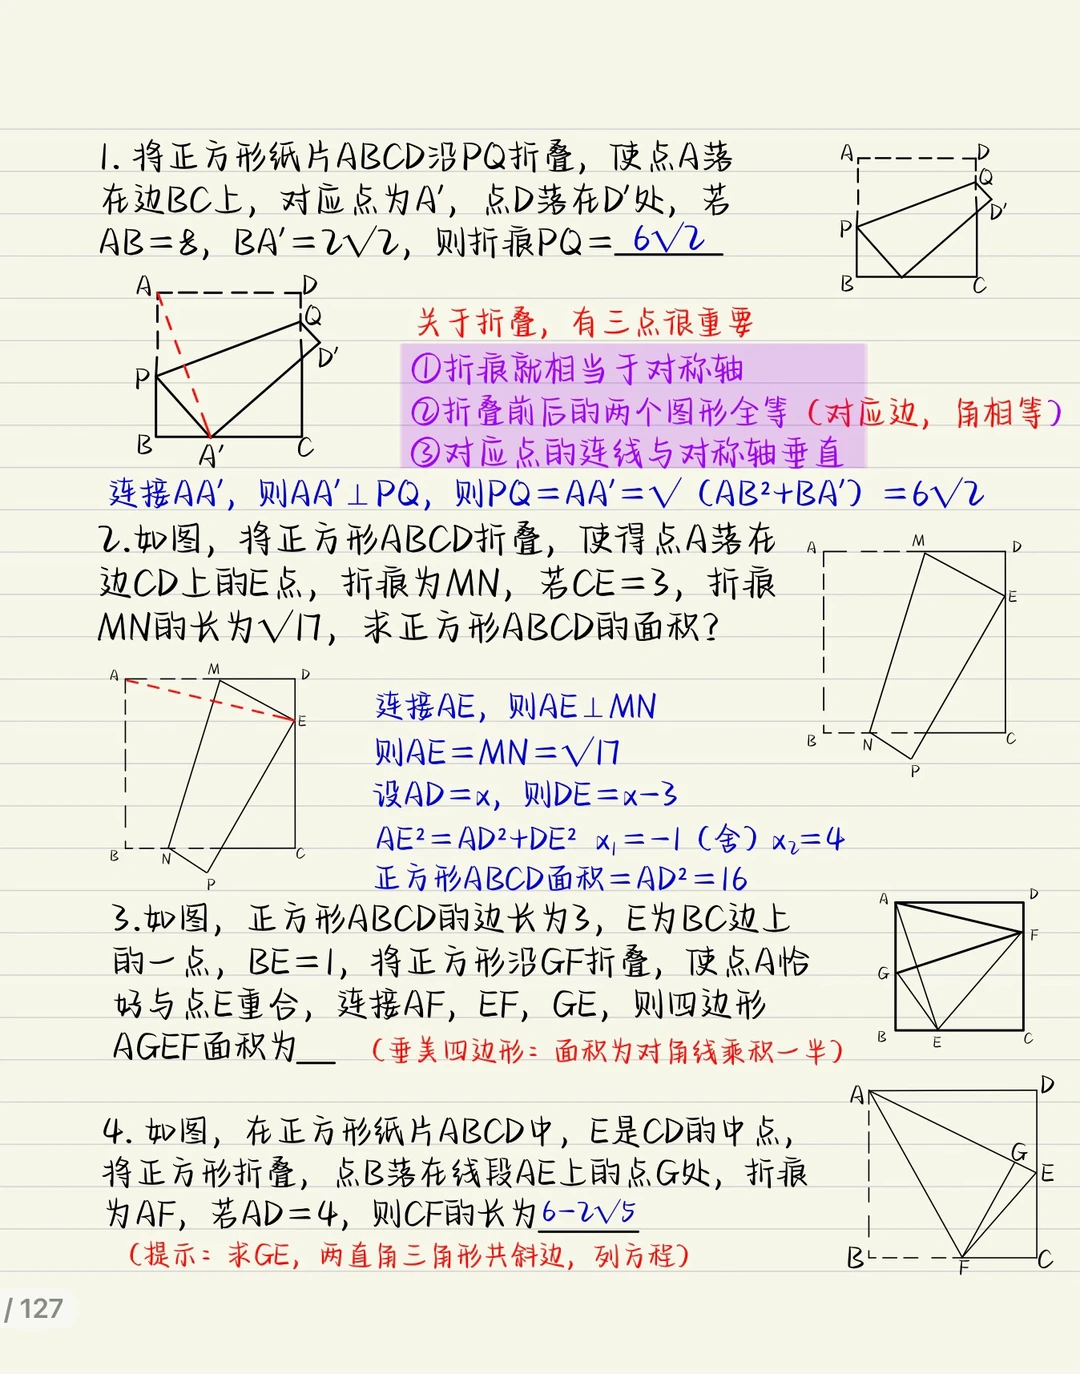 1. 将正方形纸片ABCD沿PQ折叠，使点A落
在边BC上，对应点为A′，点D落在D′处，若
AB=8，BA′=2√2，则折痕PQ=6√2
A
D
Q
D′
P
B
C
A
D
Q
D′
P
B
A′
C
关于折叠，有三点很重要
①折痕就相当于对称轴
②折叠前后的两个图形全等（对应边，角相等）
③对应点的连线与对称轴垂直
连接AA′，则AA′⊥PQ，则PQ=AA′=√（AB²+BA′）=6√2
2.如图，将正方形ABCD折叠，使得点A落在
边CD上的E点，折痕为MN，若CE=3，折痕
MN的长为√17，求正方形ABCD的面积？
A
M
D
E
B
N
C
P
A
M
D
E
B
N
C
P
连接AE，则AE⊥MN
则AE=MN=√17
设AD=x，则DE=x-3
AE²=AD²+DE² x₁=-1（舍）x₂=4
正方形ABCD面积=AD²=16
3.如图，正方形ABCD的边长为3，E为BC边上
的一点，BE=1，将正方形沿GF折叠，使点A恰
好与点E重合，连接AF，EF，GE，则四边形
AGEF面积为__ （垂美四边形：面积为对角线乘积一半）
A
D
F
G
B
E
C
4. 如图，在正方形纸片ABCD中，E是CD的中点，
将正方形折叠，点B落在线段AE上的点G处，折痕
为AF，若AD=4，则CF的长为6-2√5
（提示：求GE，两直角三角形共斜边，列方程）
A
D
G
E
B
F
C
/ 127